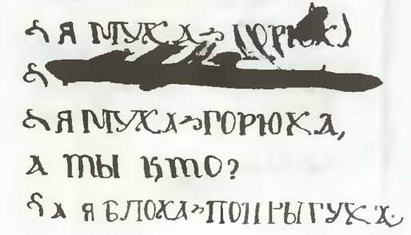 – Я МУХА-
– Я МУХА-ГОРЮХА,
А ТЫ КТО?
– А Я БЛОХА-ПОПРЫГУХА.